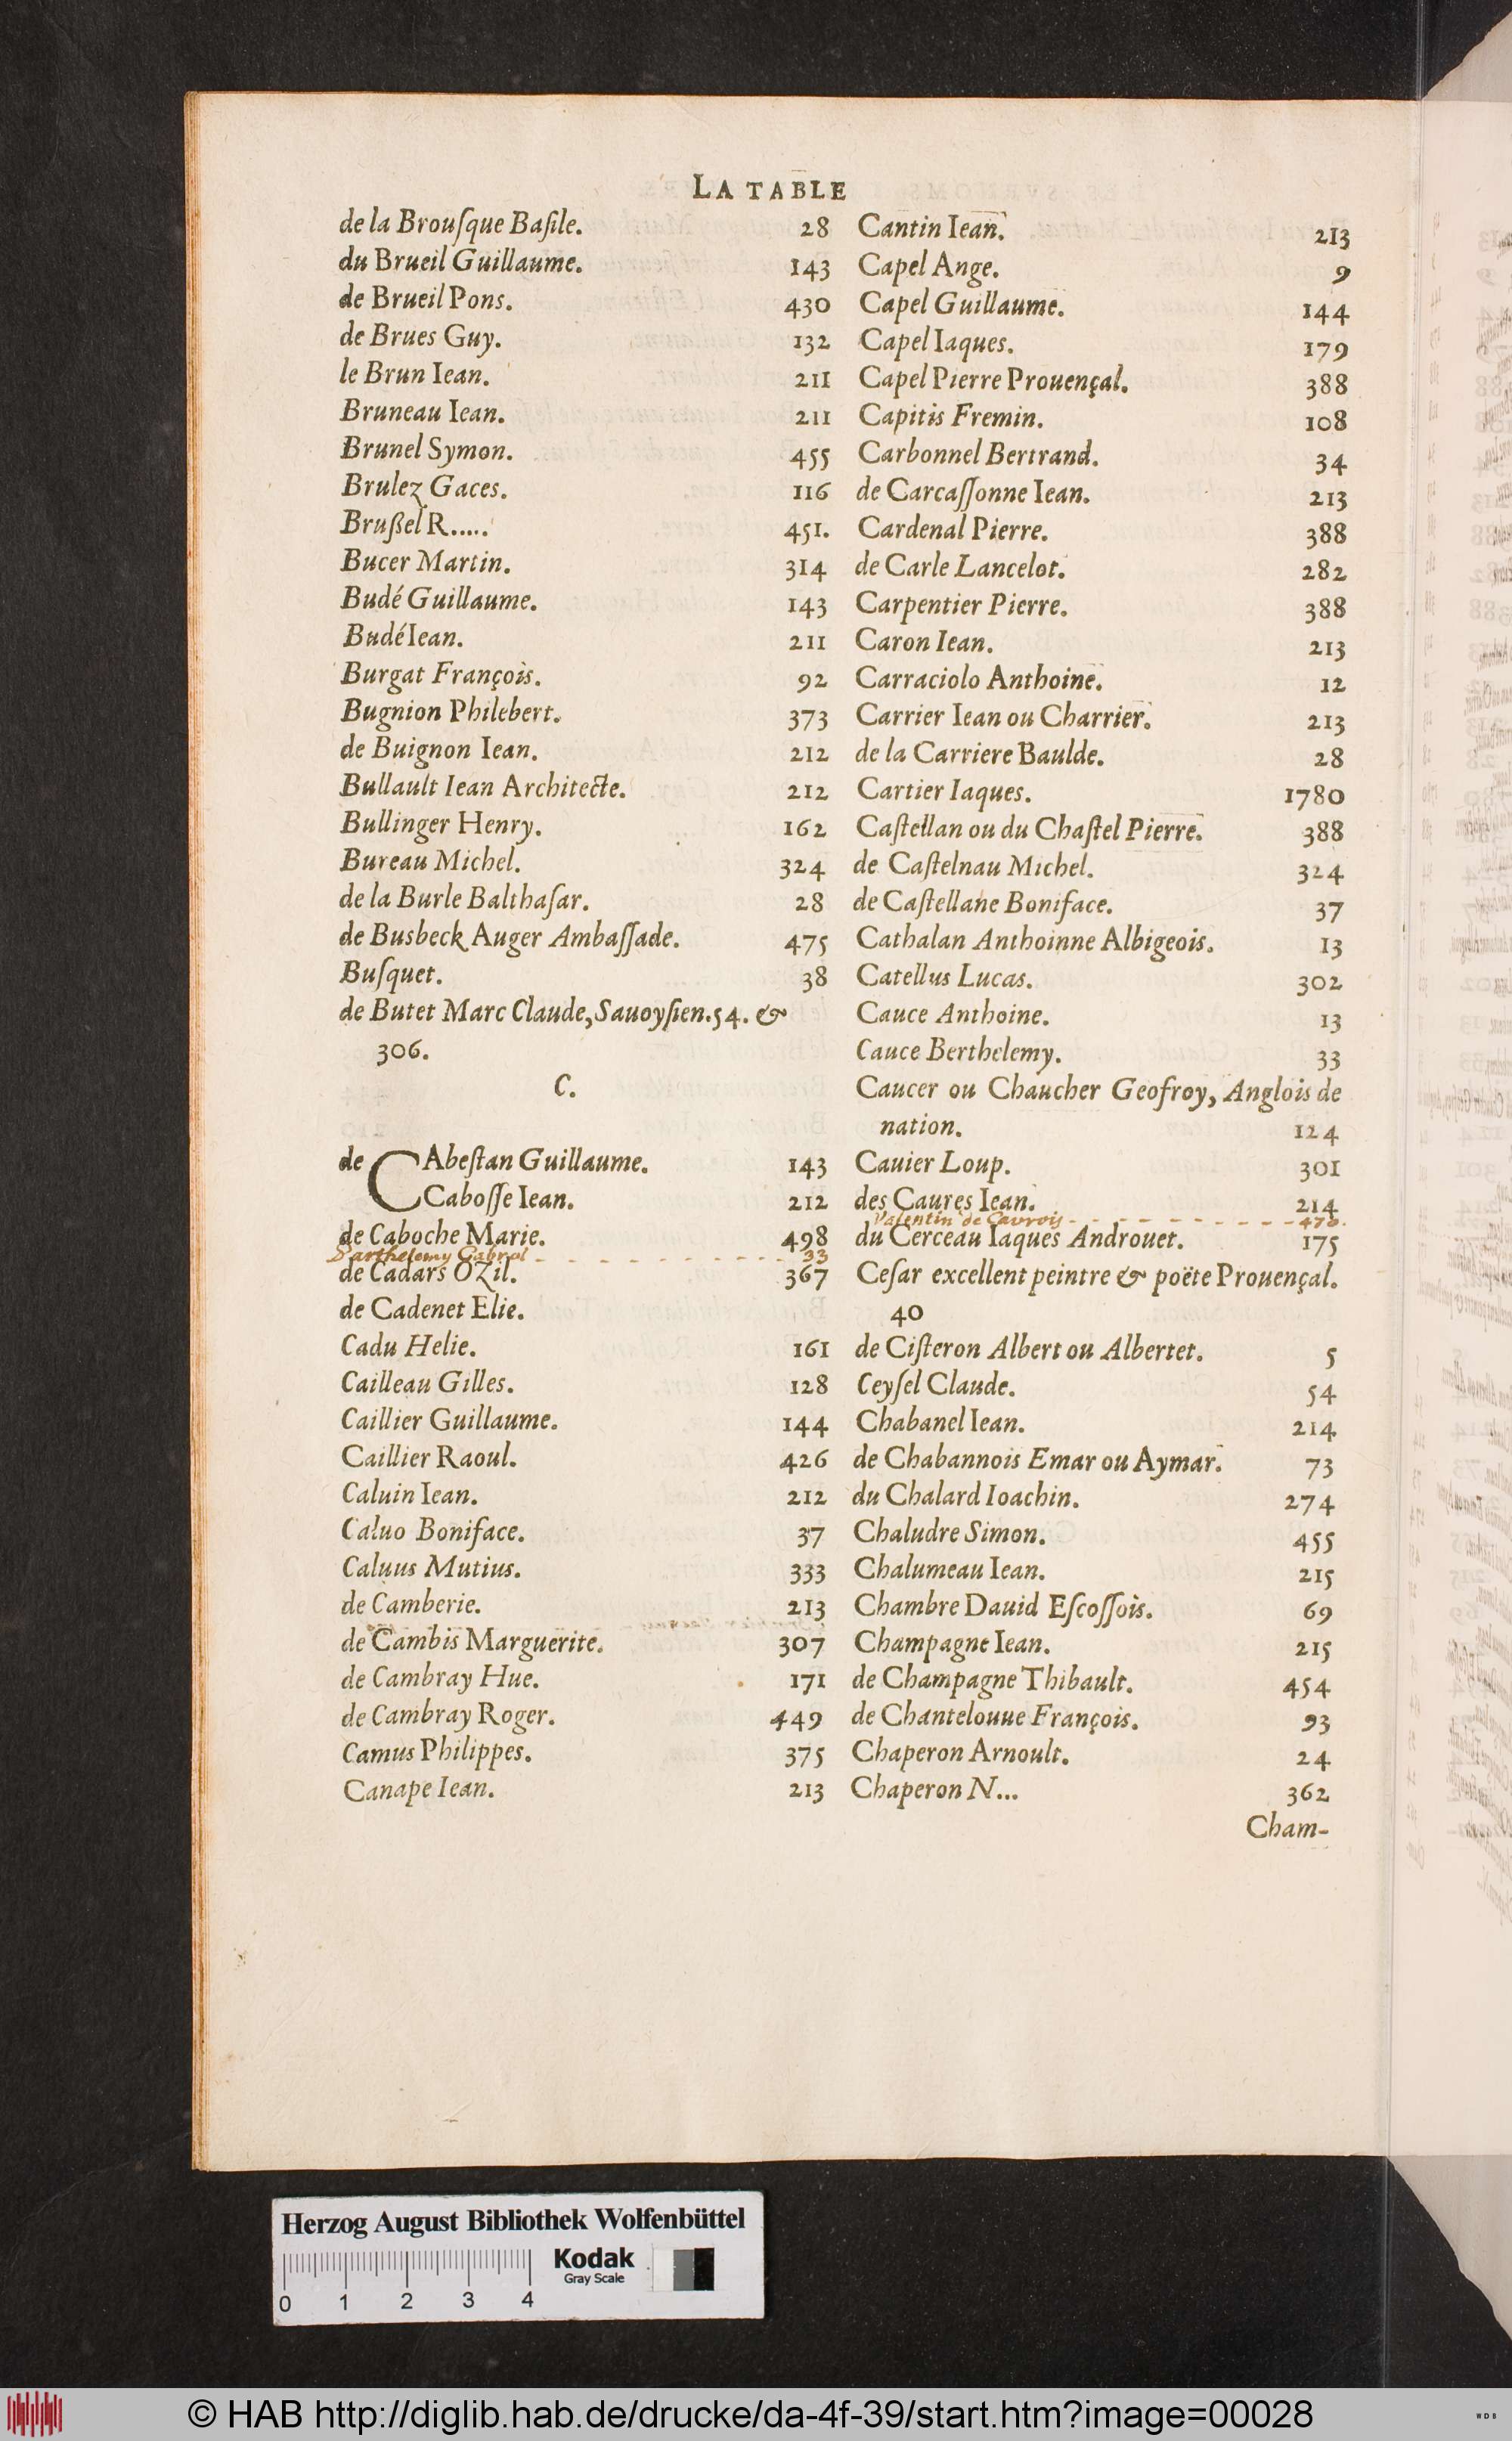 LA TABLE
de la Brouſque Baſile. 28
du Brueil Guillaume. 143
de Brueil Pons. 430
de Brues Guy. 132
le Brun Iean. 211
Bruneau Iean. 211
Brunel Symon. 455
Brulez Gaces. 116
Brußel R..... 451.
Bucer Martin. 314
Budé Guillaume. 143
Budé Iean. 211
Burgat François. 92
Bugnion Philebert. 373
de Buignon Iean. 212
Bullault Iean Architecte. 212
Bullinger Henry. 162
Bureau Michel. 324
de la Burle Balthaſar. 28
de Busbeck Auger Ambaſſade. 475
Buſquet. 38
de Butet Marc Claude, Sauoyſien. 54. &
306.
C.
de CAbeſtan Guillaume. 143
Caboſſe Iean. 212
de Caboche Marie. 498
Barthelemy Cabrol - - - - - - - - - 33
de Cadars OZil. 367
de Cadenet Elie.
Cadu Helie. 161
Cailleau Gilles. 128
Caillier Guillaume. 144
Caillier Raoul. 426
Caluin Iean. 212
Caluo Boniface. 37
Caluus Mutius. 333
de Camberie. 213
de Cambis Marguerite. 307
de Cambray Hue. 171
de Cambray Roger. 449
Camus Philippes. 375
Canape Iean. 213
Cantin Iean. 213
Capel Ange. 9
Capel Guillaume. 144
Capel Iaques. 179
Capel Pierre Prouençal. 388
Capitis Fremin. 108
Carbonnel Bertrand. 34
de Carcaſſonne Iean. 213
Cardenal Pierre. 388
de Carle Lancelot. 282
Carpentier Pierre. 388
Caron Iean. 213
Carraciolo Anthoine. 12
Carrier Iean ou Charrier. 213
de la Carriere Baulde. 28
Cartier Iaques. 1780
Caſtellan ou du Chaſtel Pierre. 388
de Caſtelnau Michel. 324
de Caſtellane Boniface. 37
Cathalan Anthoinne Albigeois. 13
Catellus Lucas. 302
Cauce Anthoine. 13
Cauce Berthelemy. 33
Caucer ou Chaucher Geofroy, Anglois de
nation. 124
Cauier Loup. 301
des Caures Iean. 214
Valentin de Caurois - - - - - - - - - 470.
du Cerceau Iaques Androuet. 175
Ceſar excellent peintre & poëte Prouençal.
40
de Ciſteron Albert ou Albertet. 5
Ceyſel Claude. 54
Chabanel Iean. 214
de Chabannois Emar ou Aymar. 73
du Chalard Ioachin. 274
Chaludre Simon. 455
Chalumeau Iean. 215
Chambre Dauid Eſcoſſois. 69
Champagne Iean. 215
de Champagne Thibault. 454
de Chantelouue François. 93
Chaperon Arnoult. 24
Chaperon N... 362
Cham-
Herzog August Bibliothek Wolfenbüttel
Kodak
Gray Scale
0 1 2 3 4
© HAB http://diglib.hab.de/drucke/da-4f-39/start.htm?image=00028
WDB